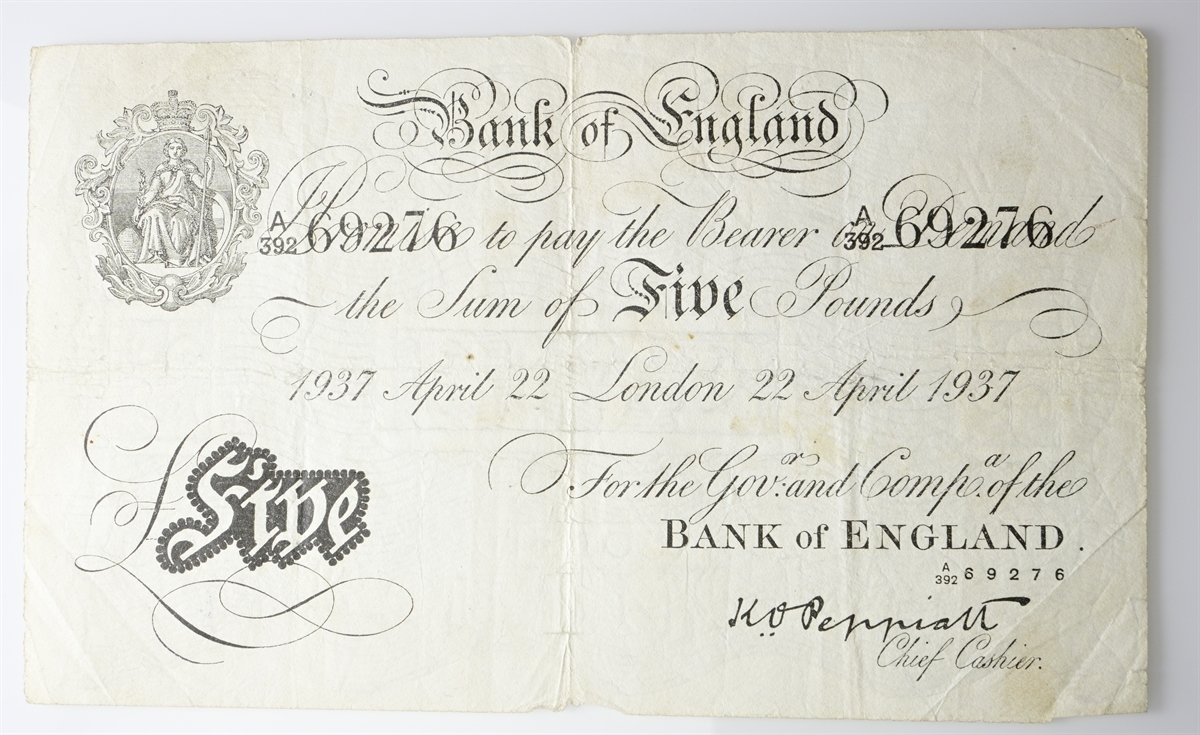 Bank of England
A
392 69276 A
392 69276
I Promise to pay the Bearer on Demand
the Sum of Five Pounds
1937 April 22 London 22 April 1937
For the Gov.r and Comp.a of the
BANK of ENGLAND.
A
392 69276
£ Five
K.O Peppiatt
Chief Cashier.